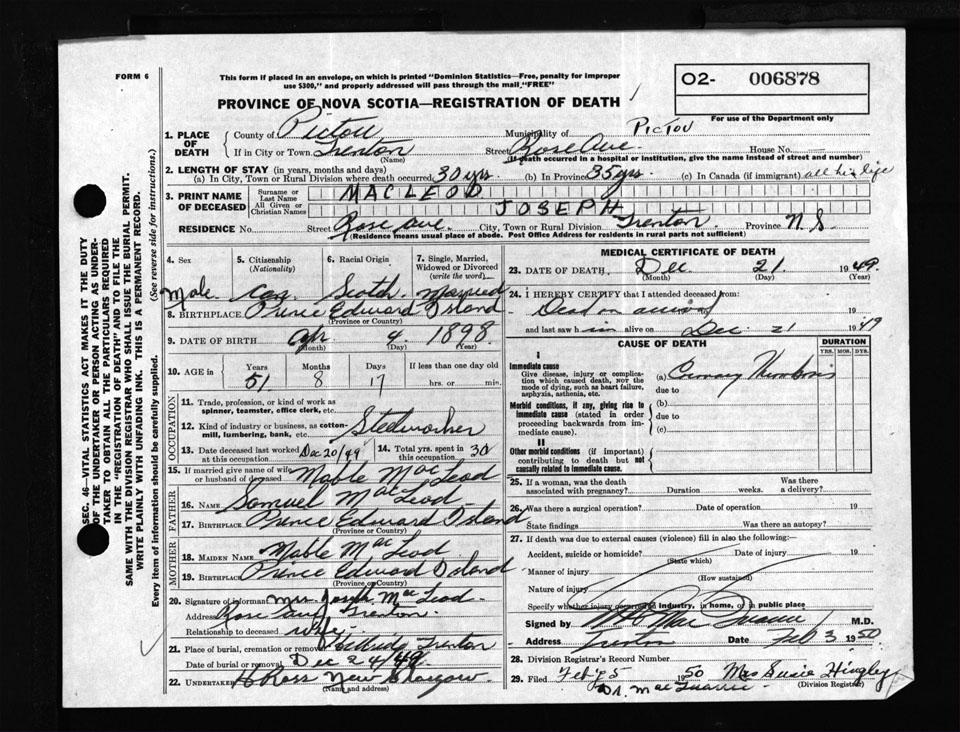 FORM 6
This form if placed in an envelope, on which is printed "Dominion Statistics—Free, penalty for improper
use $300," and properly addressed will pass through the mail "FREE"
O2- 006878
For use of the Department only
PROVINCE OF NOVA SCOTIA—REGISTRATION OF DEATH
1. PLACE OF DEATH
County of Pictou Municipality of PICTOU
If in City or Town Trenton (Name) Street Rose Ave. House No.
(If death occurred in a hospital or institution, give the name instead of street and number)
2. LENGTH OF STAY (in years, months and days)
(a) In City, Town or Rural Division where death occurred 30 yrs. (b) In Province 35 yrs. (c) In Canada (if immigrant) all his life
3. PRINT NAME OF DECEASED
Surname or Last Name MACLEOD
All Given or Christian Names JOSEPH
RESIDENCE No. Street Rose Ave. City, Town or Rural Division Trenton Province N.S.
(Residence means usual place of abode. Post Office Address for residents in rural parts not sufficient)
4. Sex
Male
5. Citizenship (Nationality)
Can.
6. Racial Origin
Scotch.
7. Single, Married, Widowed or Divorced (write the word)
Married
8. BIRTHPLACE Prince Edward Island
(Province or Country)
9. DATE OF BIRTH Apr. 9 1898
(Month) (Day) (Year)
10. AGE in
Years Months Days If less than one day old
51 8 17 hrs. or min.
OCCUPATION
11. Trade, profession, or kind of work as
spinner, teamster, office clerk, etc.
12. Kind of industry or business, as cotton-
mill, lumbering, bank, etc. Steelworker
13. Date deceased last worked at this occupation Dec 20/49
14. Total yrs. spent in this occupation 30
15. If married give name of wife or husband of deceased Mable MacLeod
FATHER
16. Name Samuel MacLeod
17. Birthplace Prince Edward Island
(Province or Country)
MOTHER
18. Maiden Name Mable MacLeod
19. Birthplace Prince Edward Island
(Province or Country)
20. Signature of informant Mrs. Joseph MacLeod
Address Rose Ave Trenton
Relationship to deceased wife
21. Place of burial, cremation or removal Trenton
Date of burial or removal Dec 24/49
22. Undertaker Ross New Glasgow
(Name and address)
MEDICAL CERTIFICATE OF DEATH
23. DATE OF DEATH Dec. 21. 1949.
(Month) (Day)
24. I HEREBY CERTIFY that I attended deceased from:
Dead on arrival
and last saw him alive on Dec. 21 1949
CAUSE OF DEATH
DURATION
YRS. MOS. DYS.
I
Immediate cause
Give disease, injury or complica-
tion which caused death, not the
mode of dying, such as heart failure,
asphyxia, asthenia, etc.
(a) Coronary Thrombosis
due to
Morbid conditions, if any, giving rise to
immediate cause (stated in order
proceeding backwards from im-
mediate cause).
(b)
due to
(c)
II
Other morbid conditions (if important)
contributing to death but not
causally related to immediate cause.
25. If a woman, was the death associated with pregnancy? Duration weeks. Was there a delivery?
26. Was there a surgical operation? Date of operation 19
State findings Was there an autopsy?
27. If death was due to external causes (violence) fill in also the following:
Accident, suicide or homicide? Date of injury 19
(State which)
Manner of injury
(How sustained)
Nature of injury
Specify whether injury occurred in industry, in home, or in public place
Signed by M.D.
Address Trenton Date Feb 3 1950
28. Division Registrar's Record Number
29. Filed Feby 5 1950 Mrs Susie Hingley
(Division Registrar)
SEC. 46—VITAL STATISTICS ACT MAKES IT THE DUTY
OF THE UNDERTAKER OR PERSON ACTING AS UNDER-
TAKER TO OBTAIN ALL THE PARTICULARS REQUIRED
IN THE "REGISTRATION OF DEATH" AND TO FILE THE
SAME WITH THE DIVISION REGISTRAR WHO SHALL ISSUE THE BURIAL PERMIT.
WRITE PLAINLY WITH UNFADING INK. THIS IS A PERMANENT RECORD.
Every item of information should be carefully supplied. (See reverse side for instructions.)